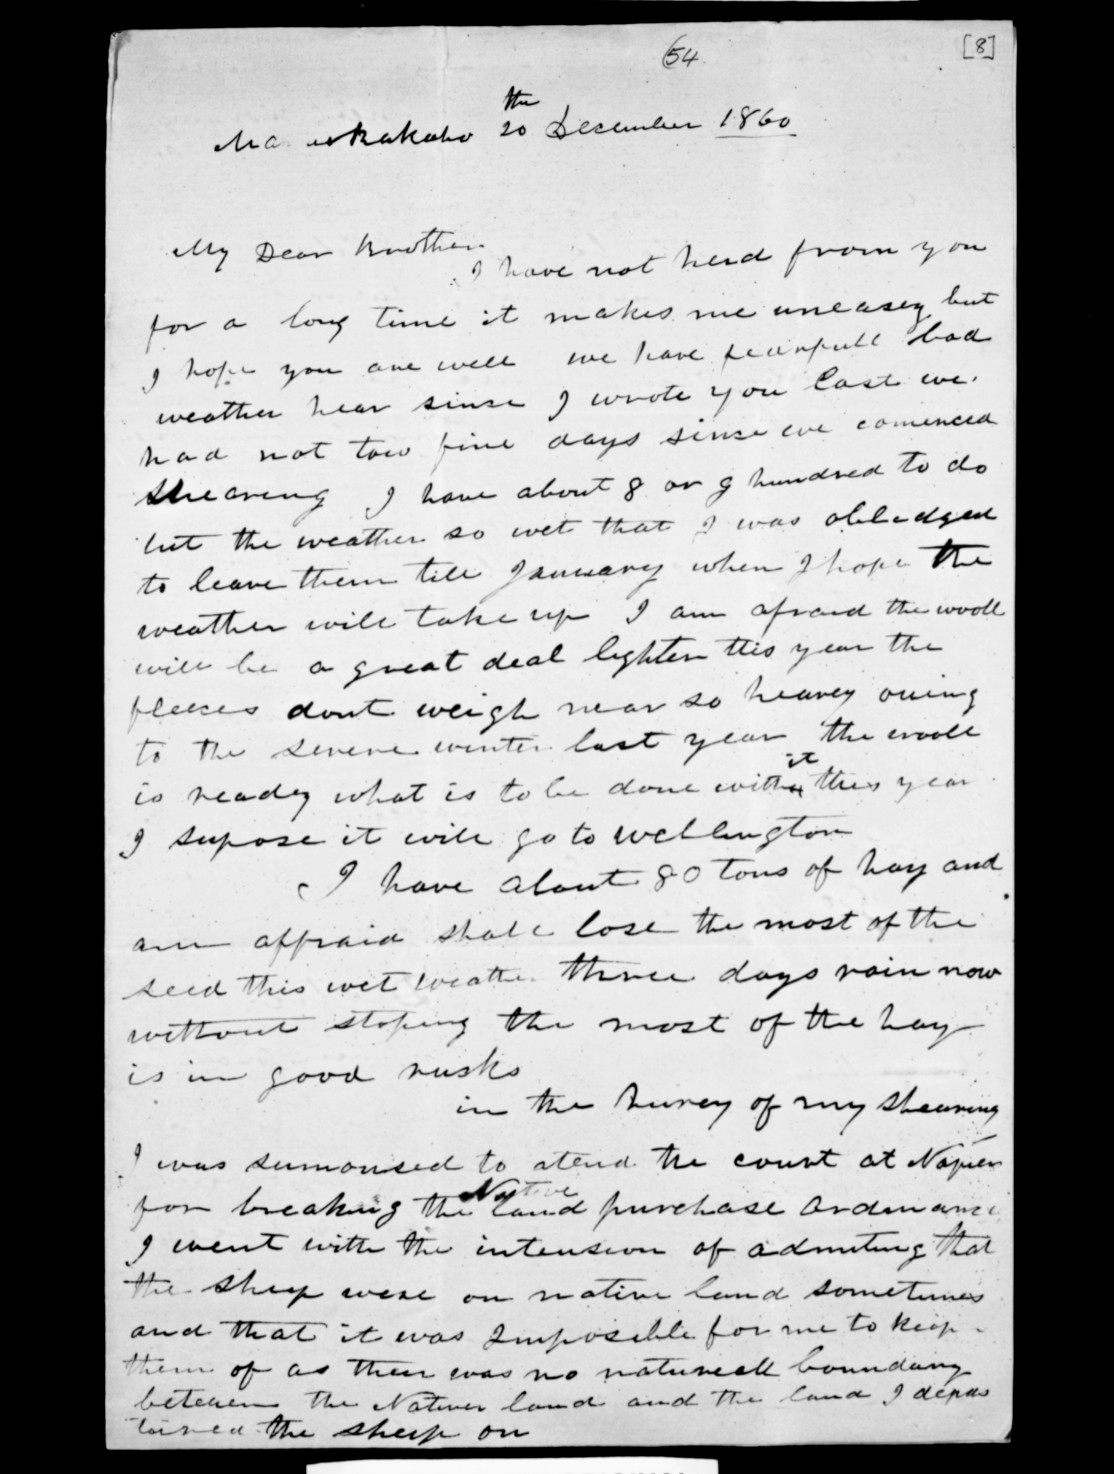 54
[8]
the
20 December 1860
My Dear Brother
I have not herd from you
for a long time it makes me uneasey but
I hope you are well we have fearfull bad
weather hear sinse I wrote you last we
had not tow fine days sinse we comenced
shearing I have about 8 or 9 hundred to do
but the weather so wet that I was obledged
to leave them till January when I hope the
weather will take up I am afraid the wooll
will be a great deal lighter this year the
fleeces dont weigh near so heavey owing
to the severe winter last year the wooll
it
is ready what is to be done with this year
I supose it will go to wellington
I have about 80 tons of hay and
am affraid shall lose the most of the
seed this wet weather three days rain now
without stoping the most of the hay
is in good rusks
in the hurey of my shearing
I was sumonsed to atend the court at Napier
Native
for breaking the land purchase ordinance
I went with the intension of admiting that
the sheep were on native land sometimes
and that it was Imposible for me to keep
them of as ther was no natureall boundary
between the Natives land and the land I depas
tured the sheep on